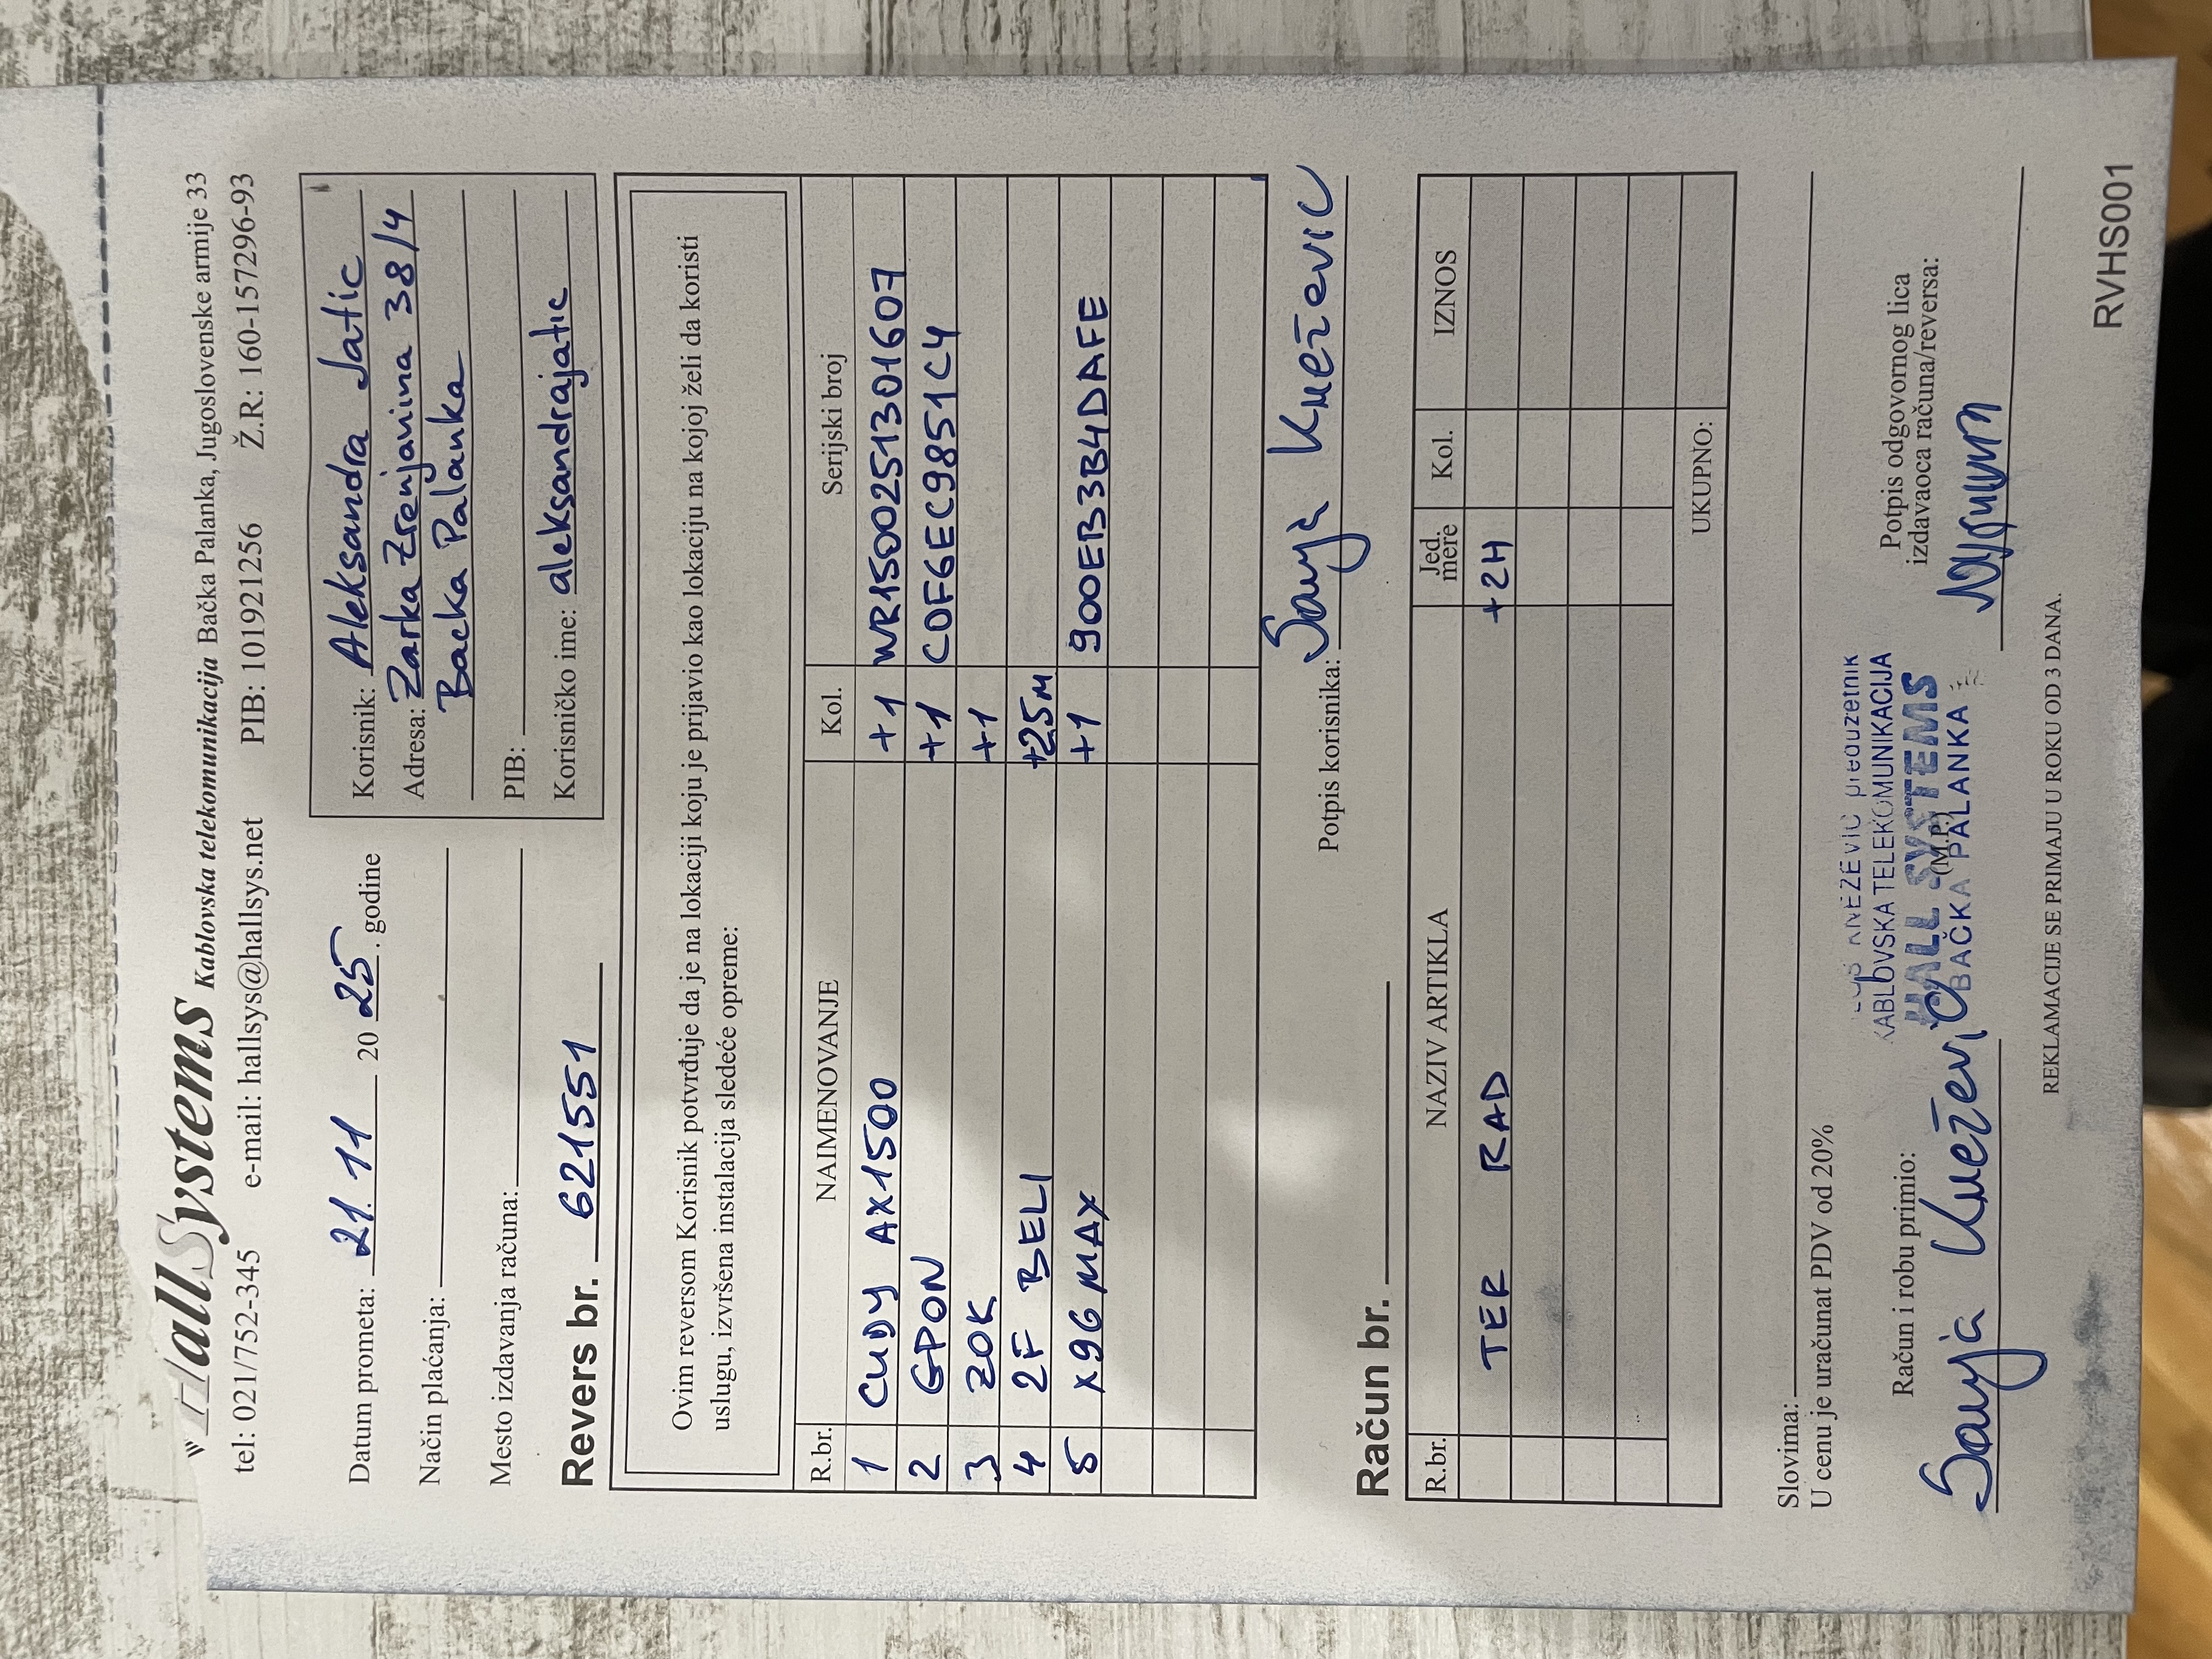 HallSystems Kablovska telekomunikacija Bačka Palanka, Jugoslovenske armije 33
tel: 021/752-345 e-mail: hallsys@hallsys.net PIB: 101921256 Ž.R: 160-157296-93
Datum prometa: 21. 11 20 25. godine
Način plaćanja:
Mesto izdavanja računa:
Revers br. 621551
Korisnik: Aleksandra Jatic
Adresa: Zarka Zrenjanina 38/4
Backa Palanka
PIB:
Korisničko ime: aleksandrajatic
Ovim reversom Korisnik potvrđuje da je na lokaciji koju je prijavio kao lokaciju na kojoj želi da koristi
uslugu, izvršena instalacija sledeće opreme:
R.br. NAIMENOVANJE Kol. Serijski broj
1 CUDY AX1500 +1 WR1500251301607
2 GPON +1 C0F6EC9851C4
3 ZOK +1
4 2F BELI +25M
5 X96 MAX +1 900EB3B4DAFE
Potpis korisnika: Sanja Knežević
Račun br.
R.br. NAZIV ARTIKLA Jed. mere Kol. IZNOS
TER RAD +2H
UKUPNO:
Slovima:
U cenu je uračunat PDV od 20%
Račun i robu primio:
Sanja Knežević
KNEŽEVIĆ preduzetnik
KABLOVSKA TELEKOMUNIKACIJA
HALL SYSTEMS
(M.P.)
BAČKA PALANKA
Potpis odgovornog lica
izdavaoca računa/reversa:
REKLAMACIJE SE PRIMAJU U ROKU OD 3 DANA.
RVHS001